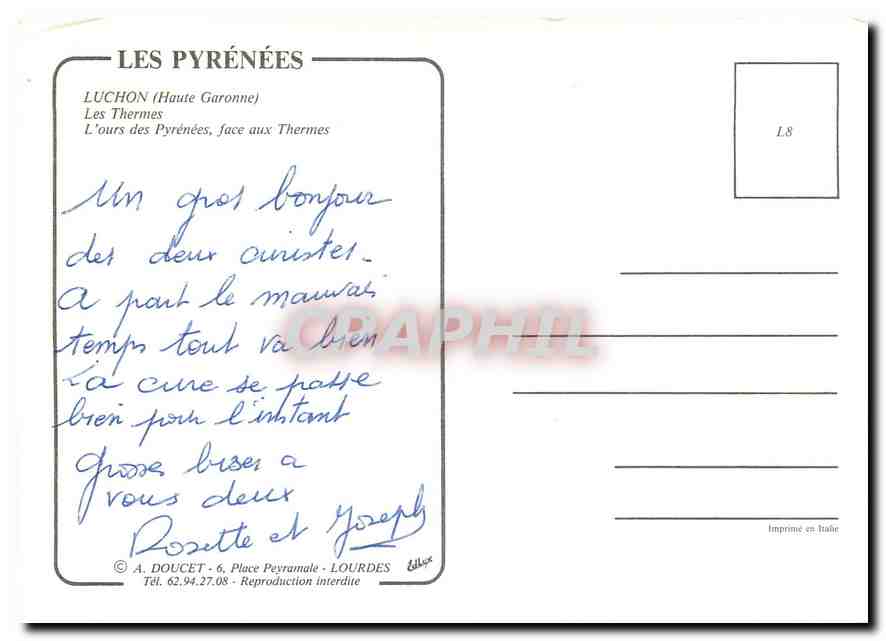 LES PYRÉNÉES
LUCHON (Haute Garonne)
Les Thermes
L'ours des Pyrénées, face aux Thermes
L8
Un gros bonjour
des deux curistes -
A part le mauvais
temps tout va bien
La cure se passe
bien pour l'instant
Grosses bises a
vous deux
Rosette et Joseph
CRAPHIL
Imprimé en Italie
© A. DOUCET - 6, Place Peyramale - LOURDES
Tél. 62.94.27.08 - Reproduction interdite